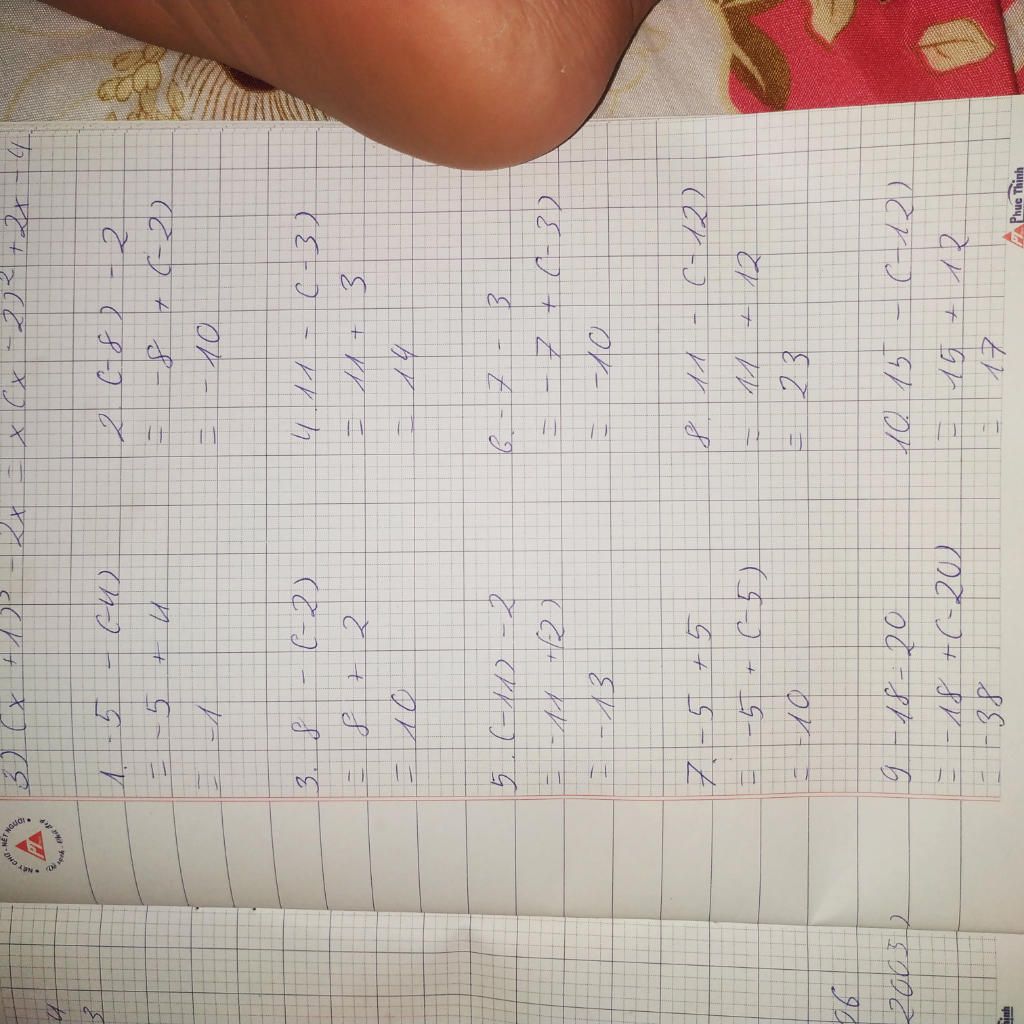 3) (x + 1)³ - 2x = x (x - 2)² + 2x - 4
1. -5 - (-4)
= -5 + 4
= -1
2. (-8) - 2
= -8 + (-2)
= -10
3. 8 - (-2)
= 8 + 2
= 10
4. 11 - (-3)
= 11 + 3
= 14
5. (-11) - 2
= -11 +(-2)
= -13
6. -7 - 3
= -7 + (-3)
= -10
7. -5 + 5
= -5 + (-5)
= -10
8. 11 - (-12)
= 11 + 12
= 23
9 -18 - 20
= -18 + (-20)
= -38
10. 15 - (-12)
= 15 + 12
= 17
NÉT CHỮ - NẾT NGƯỜI
PL
PL Phuc Thinh
4
3
06
2005)